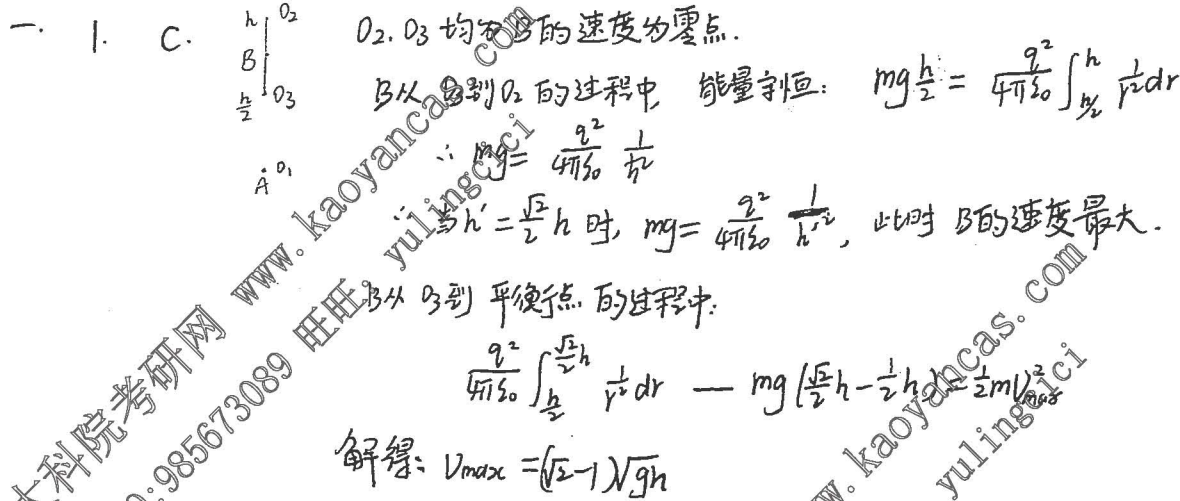 一. 1. C. h O2 O2. O3 均为B的速度为零点.
B
h/2 O3 B从O3到O2的过程中, 能量守恒: mg h/2 = q²/4πε0 ∫_{h/2}^{h} 1/r² dr
A O1 ∵ mg = q²/4πε0 1/h²
∴ 当h' = √2/2 h 时, mg = q²/4πε0 1/h'², 此时 B的速度最大.
B从 O3到 平衡点 的过程中:
q²/4πε0 ∫_{h/2}^{√2/2 h} 1/r² dr — mg(√2/2 h - 1/2 h) = 1/2 mV²max
解得: Vmax = (√2-1)√gh
大科院考研网 www.kaoyancas.com
:985673089 旺旺: yulingcici
w.kaoyancas.com
yulingcici